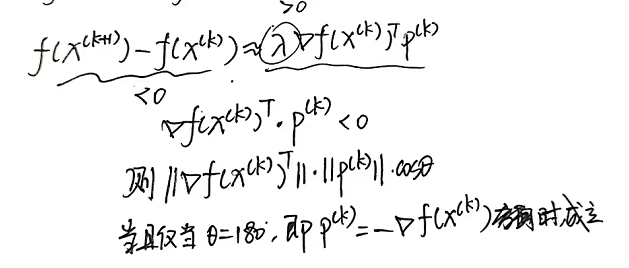 >0
f(x^(k+1))-f(x^(k))≈λ∇f(x^(k))^T p^(k)
<0
∇f(x^(k))^T·p^(k)<0
则||∇f(x^(k))^T||·||p^(k)||·cosθ
当且仅当θ=180°,即p^(k)=-∇f(x^(k))方向时成立